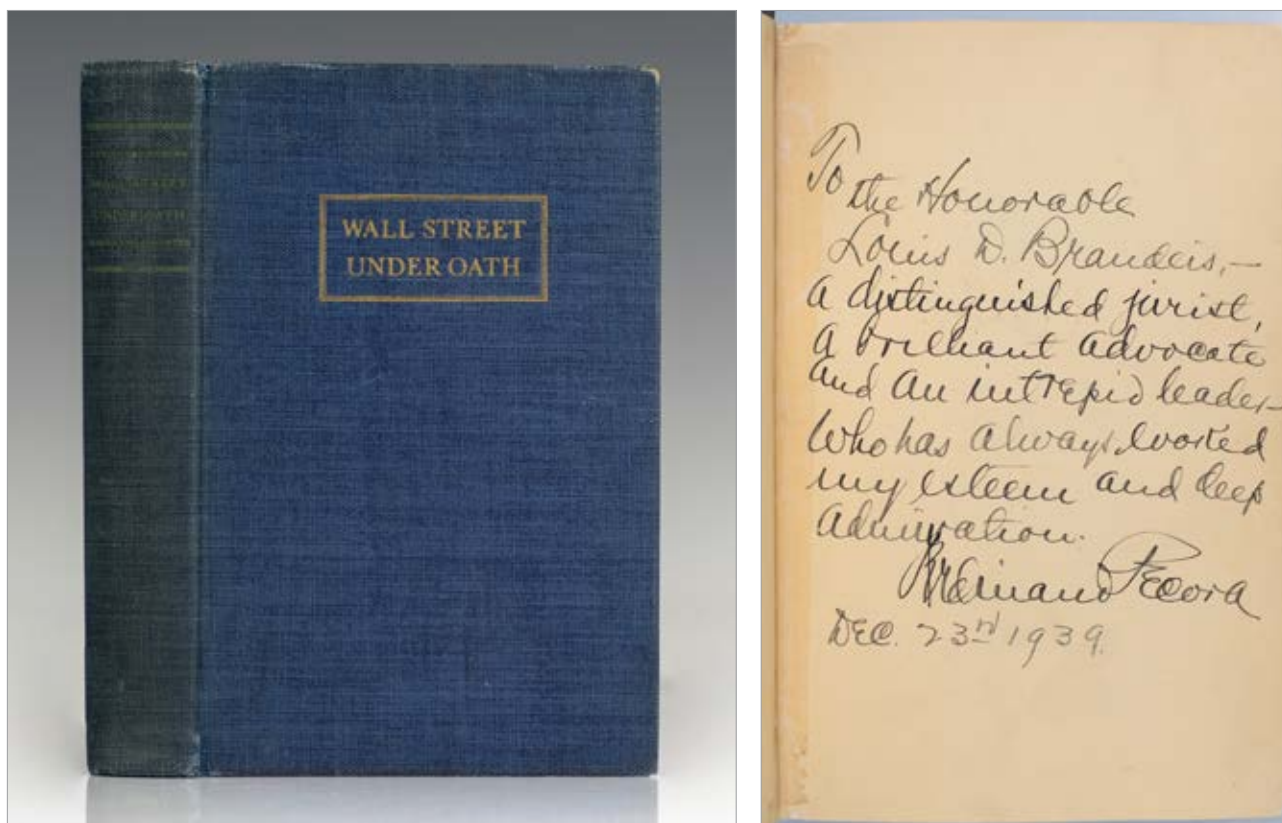 WALL STREET
UNDER OATH
UNDER OATH
To
the Honorable
Louis D. Brandeis,—
a distinguished jurist,
a brilliant advocate
and an intrepid leader—
who has always evoked
my esteem and deep
admiration.
Ferdinand Pecora
DEC. 23rd 1939.